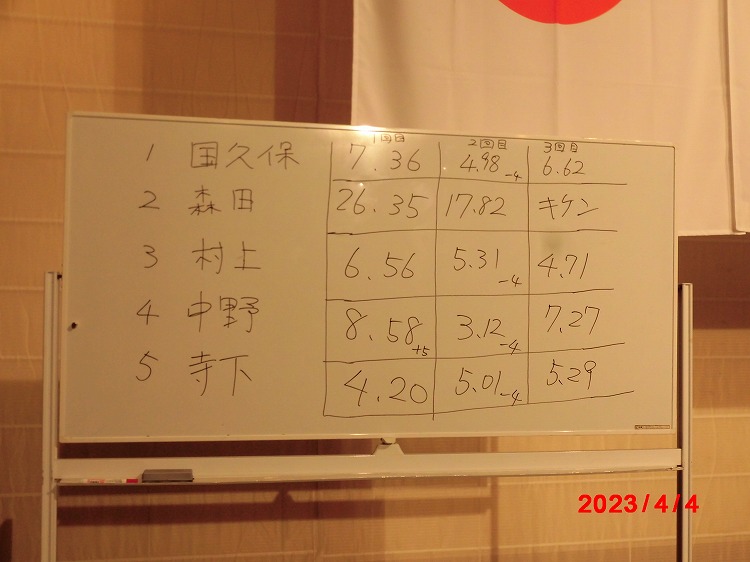 1回目 2回目 3回目
1 国久保 7.36 4.98 -4 6.62
2 森田 26.35 17.82 キケン
3 村上 6.56 5.31 -4 4.71
4 中野 8.58 +5 3.12 -4 7.27
5 寺下 4.20 5.01 -4 5.29
2023/4/4